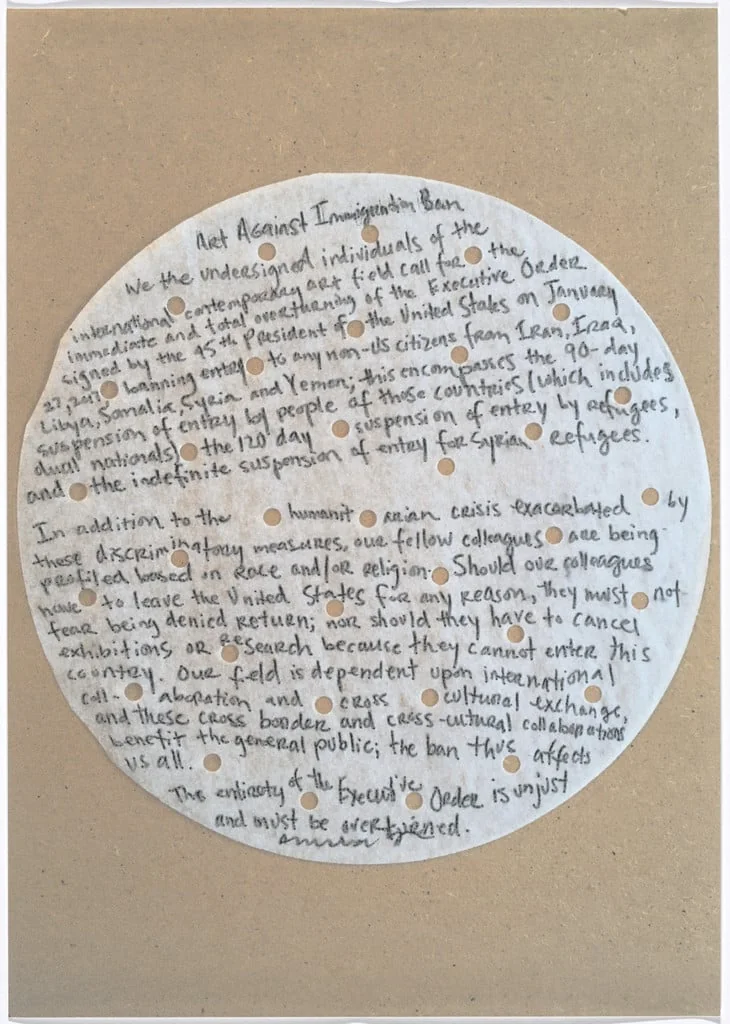 Art Against Immigration Ban
We the undersigned individuals of the
international contemporary art field call for the
immediate and total overturning of the Executive Order
signed by the 45th President of the United States on January
27, 2017, banning entry to any non-US citizens from Iran, Iraq,
Libya, Somalia, Syria and Yemen; this encompasses the 90-day
suspension of entry by people of those countries (which includes
dual nationals) the 120 day suspension of entry by refugees,
and the indefinite suspension of entry for Syrian refugees.
In addition to the humanit arian crisis exacerbated by
these discriminatory measures, our fellow colleagues are being
profiled based on race and/or religion. Should our colleagues
have to leave the United States for any reason, they must not
fear being denied return; nor should they have to cancel
exhibitions or research because they cannot enter this
country. Our field is dependent upon international
coll- aboration and cross cultural exchange,
and these cross border and cross-cutural collaborations
benefit the general public; the ban thus affects
us all.
The entirety of the Executive Order is unjust
and must be overturned.